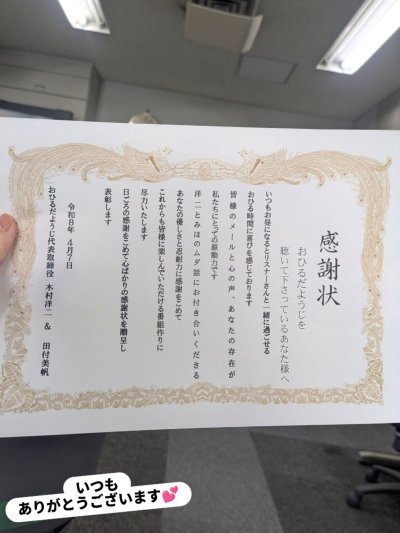 感謝状
おひるだようじを
聴いて下さっているあなた様へ
いつもお昼になるとリスナーさんと一緒に過ごせる
おひる時間に喜びを感じております
皆様のメールと心の声、あなたの存在が
私たちにとっての原動力です
洋二とみほのムダ話にお付き合いくださる
あなたの優しさと忍耐力に感謝をこめて
これからも皆様に楽しんでいただける番組作りに
尽力いたします
日ごろの感謝をこめて心ばかりの感謝状を贈呈し
表彰します
令和8年 4月7日
おひるだようじ代表取締役 木村洋二 & 田付美帆
いつも
ありがとうございます💕